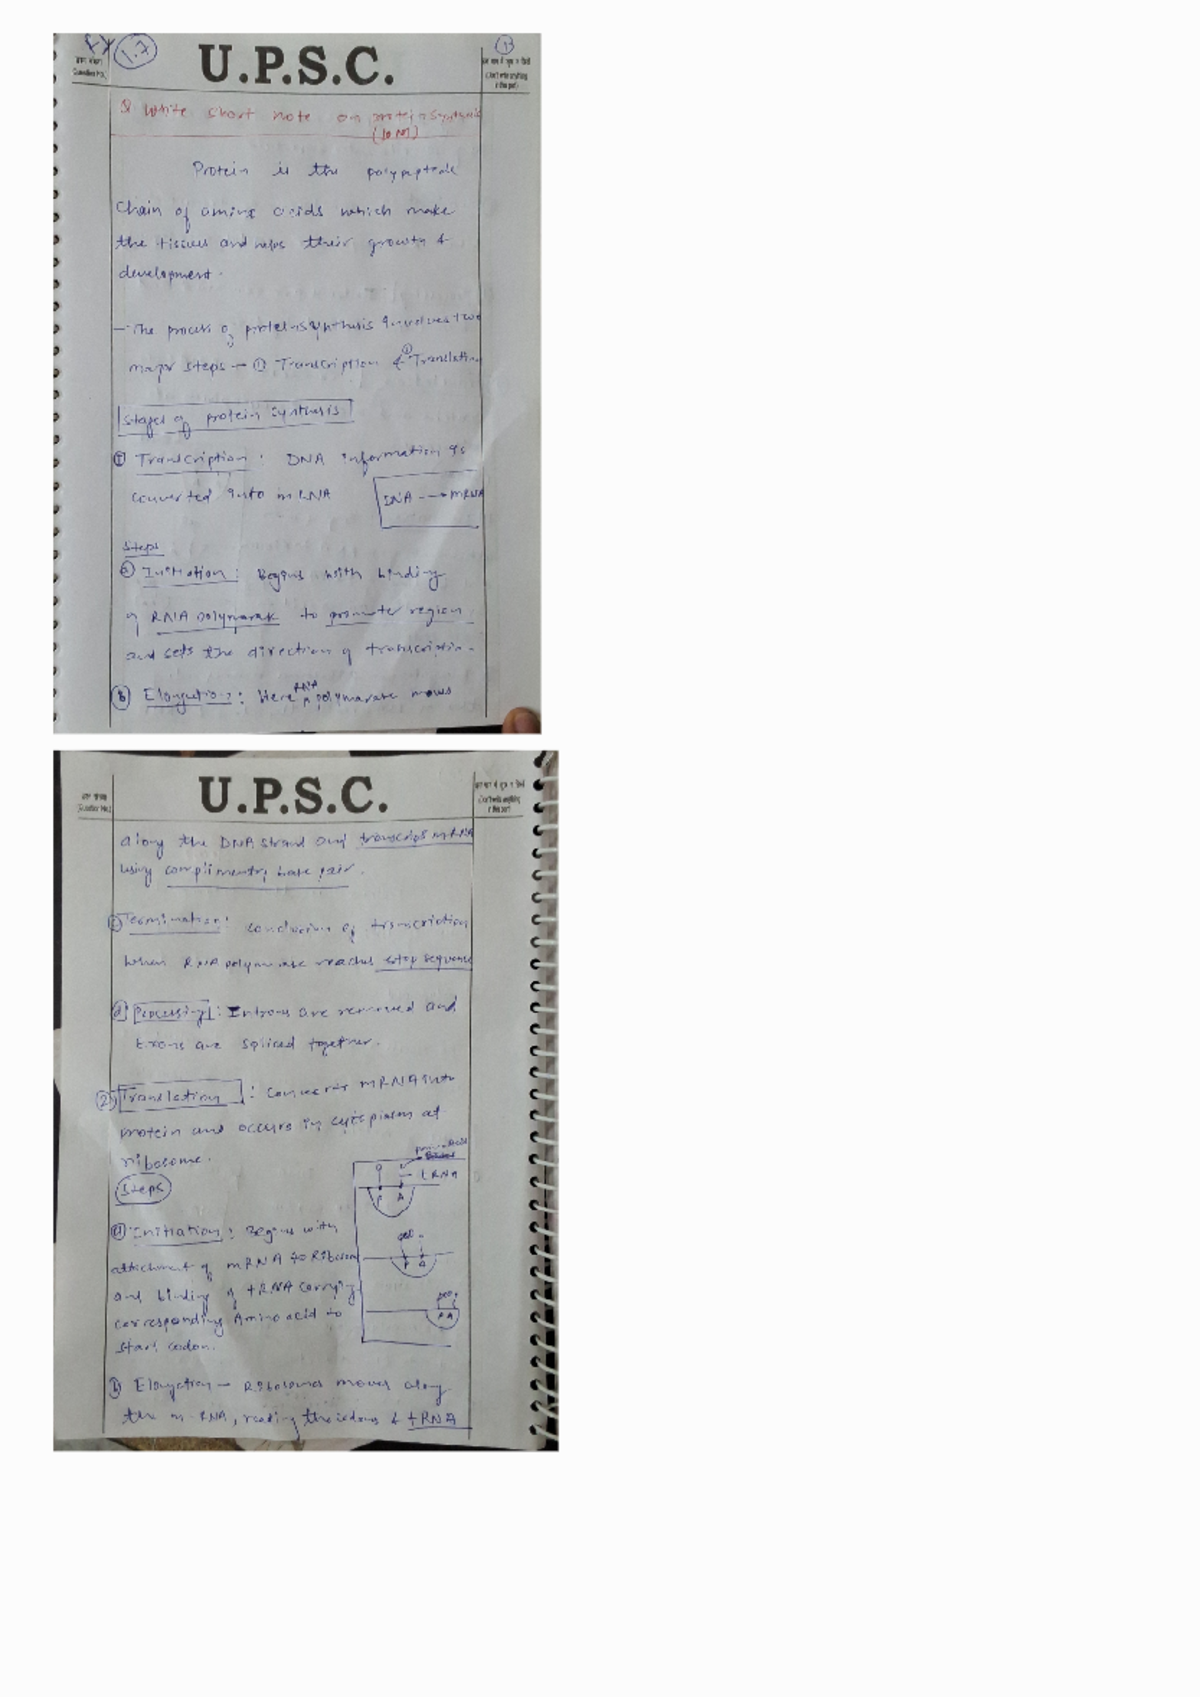 1.7
13
U.P.S.C.
(Question No.)
(Don't write anything in this part)
Q Write short note on protein synthesis
(10M)
Protein is the polypeptede
Chain of amino acids which make
the tissues and helps their growth &
development.
- The process of protein synthesis involves two
major steps - ① Transcription & ② Translation
Stages of protein synthesis
① Transcription: DNA information is
converted into mRNA
DNA --→ mRNA
Steps
ⓐ Initiation: Begins with binding
of RNA polymarase to promoter region
and sets the direction of transcription.
ⓑ Elongation: Here RNA polymarase moves
U.P.S.C.
(Question No.)
(Don't write anything in this part)
along the DNA strand and transcript mRNA
using complimentry base pair.
ⓒ Termination: Conclusion of transcription
when RNA polymerase reaches stop sequence
ⓓ Processing: Introns are removed and
Exons are spliced together.
② Translation: Converts mRNA into
protein and occurs in cytoplasm at
ribosome.
tRNA
P A
Steps
ⓐ Initiation: Begins with
attachment of mRNA to Ribosome
P A
and binding of tRNA carrying
corresponding Amino acid to
P A
start codon.
ⓑ Elongation - Ribosomes moves along
the m-RNA, reading the codons & tRNA